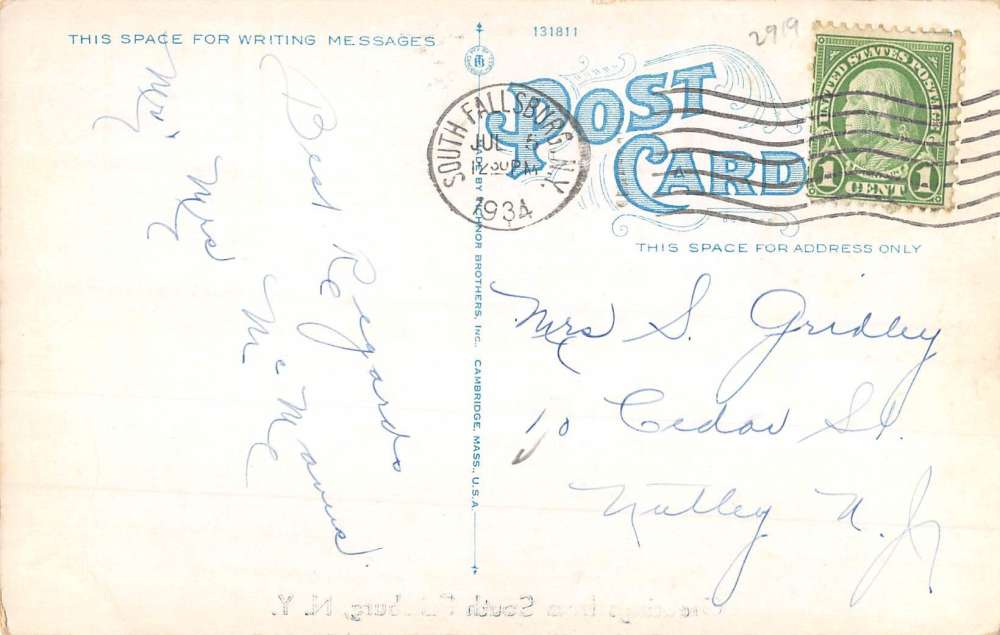 THIS SPACE FOR WRITING MESSAGES
131811
2919
POST
CARD
UNITED STATES POSTAGE
1 CENT 1
SOUTH FALLSBURG, N.Y.
JUL 5
12 30 PM
1934
THIS SPACE FOR ADDRESS ONLY
Best Regards
Mr. & Mrs
Mc Manus.
Mrs S. Gridley
10 Cedar St.
Nutley N. J.
MADE BY TICHNOR BROTHERS, INC., CAMBRIDGE, MASS., U.S.A.
Greetings from South Fallsburg, N.Y.